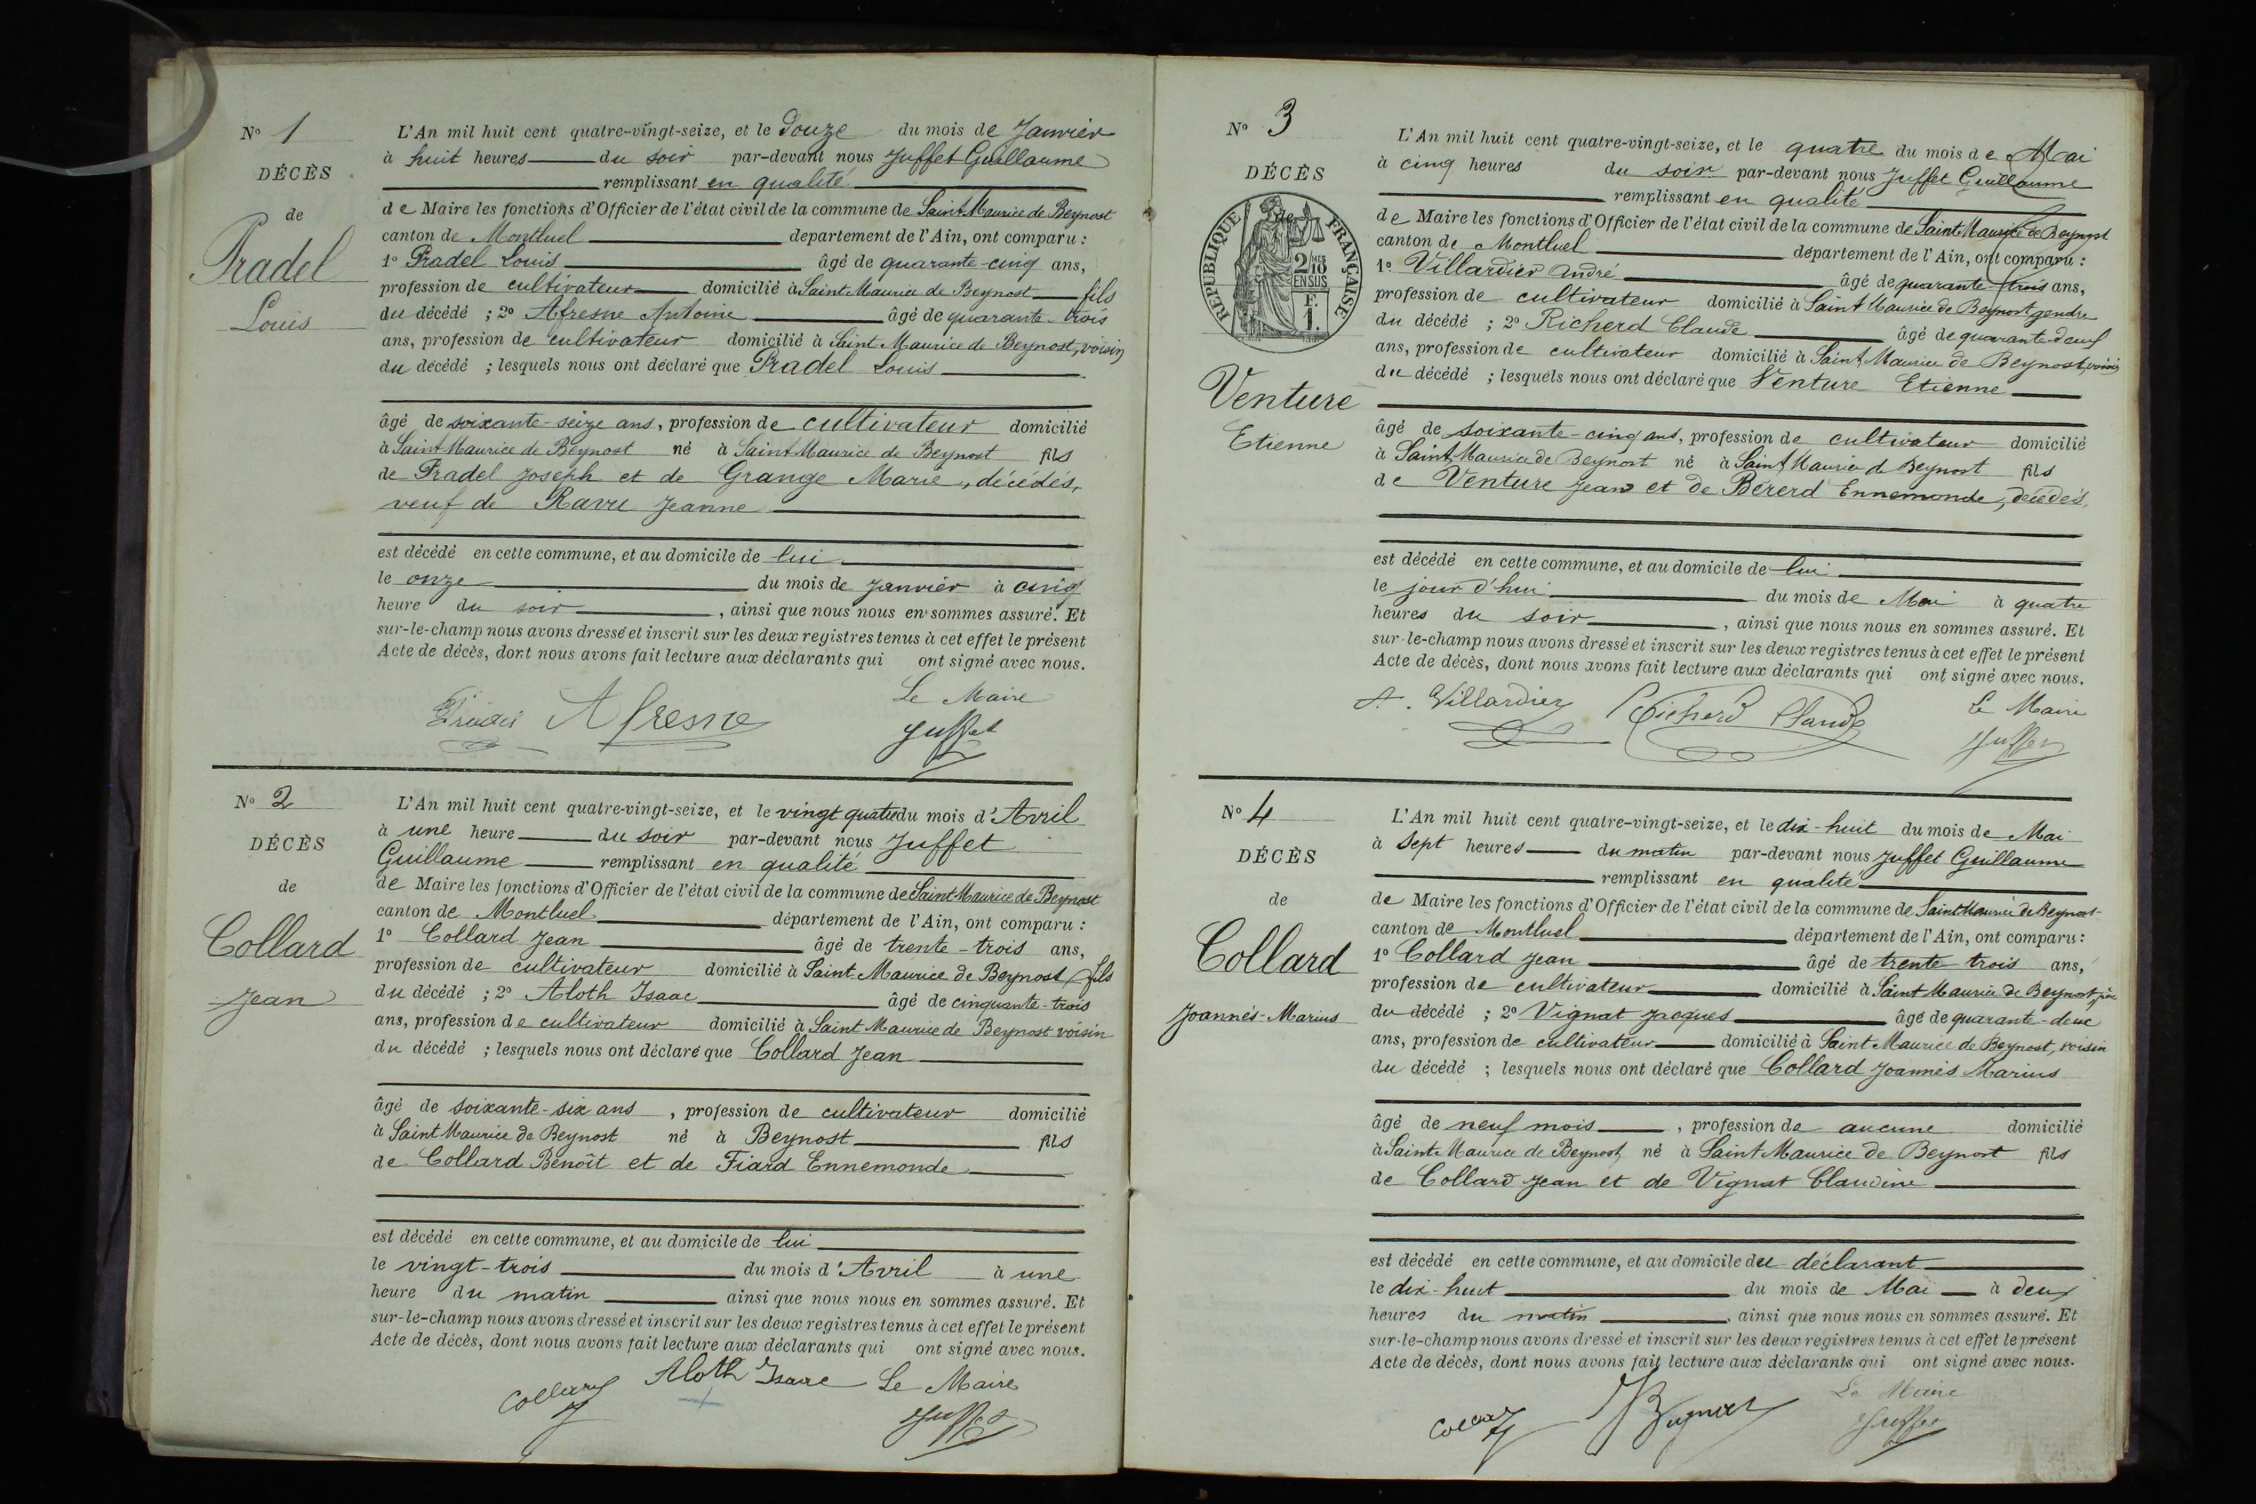 N° 1
DÉCÈS
de
Pradel
Louis
L'An mil huit cent quatre-vingt-seize, et le Douze du mois de Janvier
à huit heures du soir par-devant nous Juffet Guillaume
remplissant en qualité
de Maire les fonctions d'Officier de l'état civil de la commune de Saint Maurice de Beynost
canton de Montluel département de l'Ain, ont comparu :
1° Pradel Louis âgé de quarante-cinq ans,
profession de cultivateur domicilié à Saint Maurice de Beynost fils
du décédé ; 2° Afresne Antoine âgé de quarante-trois
ans, profession de cultivateur domicilié à Saint Maurice de Beynost, voisin
du décédé ; lesquels nous ont déclaré que Pradel Louis
âgé de soixante-seize ans, profession de cultivateur domicilié
à Saint Maurice de Beynost né à Saint Maurice de Beynost fils
de Pradel Joseph et de Grange Marie, décédés,
veuf de Ravu Jeanne
est décédé en cette commune, et au domicile de lui
le onze du mois de Janvier à cinq
heure du soir, ainsi que nous nous en sommes assuré. Et
sur-le-champ nous avons dressé et inscrit sur les deux registres tenus à cet effet le présent
Acte de décès, dont nous avons fait lecture aux déclarants qui ont signé avec nous.
Le Maire
Pradel Afresne Juffet
N° 2
DÉCÈS
de
Collard
Jean
L'An mil huit cent quatre-vingt-seize, et le vingt quatre du mois d'Avril
à une heure du soir par-devant nous Juffet
Guillaume remplissant en qualité
de Maire les fonctions d'Officier de l'état civil de la commune de Saint Maurice de Beynost
canton de Montluel département de l'Ain, ont comparu :
1° Collard Jean âgé de trente-trois ans,
profession de cultivateur domicilié à Saint Maurice de Beynost, fils
du décédé ; 2° Aloth Isaac âgé de cinquante-trois
ans, profession de cultivateur domicilié à Saint Maurice de Beynost voisin
du décédé ; lesquels nous ont déclaré que Collard Jean
âgé de soixante-six ans, profession de cultivateur domicilié
à Saint Maurice de Beynost né à Beynost fils
de Collard Benoît et de Fiard Ennemonde
est décédé en cette commune, et au domicile de lui
le vingt-trois du mois d'Avril à une
heure du matin ainsi que nous nous en sommes assuré. Et
sur-le-champ nous avons dressé et inscrit sur les deux registres tenus à cet effet le présent
Acte de décès, dont nous avons fait lecture aux déclarants qui ont signé avec nous.
Collard J Aloth Isaac Le Maire
Juffet
N° 3
DÉCÈS
de
RÉPUBLIQUE FRANÇAISE
2/10 EN SUS
F. 1.
Venture
Etienne
L'An mil huit cent quatre-vingt-seize, et le quatre du mois de Mai
à cinq heures du soir par-devant nous Juffet Guillaume
remplissant en qualité
de Maire les fonctions d'Officier de l'état civil de la commune de Saint Maurice de Beynost
canton de Montluel département de l'Ain, ont comparu :
1° Villardier André âgé de quarante-trois ans,
profession de cultivateur domicilié à Saint Maurice de Beynost gendre
du décédé ; 2° Richerd Claude âgé de quarante-deux
ans, profession de cultivateur domicilié à Saint Maurice de Beynost, voisin
du décédé ; lesquels nous ont déclaré que Venture Etienne
âgé de soixante-cinq ans, profession de cultivateur domicilié
à Saint Maurice de Beynost né à Saint Maurice d Beynost fils
de Venture Jean et de Bérerd Ennemonde, décédés,
est décédé en cette commune, et au domicile de lui
le jour d'hui du mois de Mai à quatre
heures du soir, ainsi que nous nous en sommes assuré. Et
sur-le-champ nous avons dressé et inscrit sur les deux registres tenus à cet effet le présent
Acte de décès, dont nous avons fait lecture aux déclarants qui ont signé avec nous.
A. Villardier Richerd Claude Le Maire
Juffet
N° 4
DÉCÈS
de
Collard
Joannès-Marius
L'An mil huit cent quatre-vingt-seize, et le dix-huit du mois de Mai
à Sept heures du matin par-devant nous Juffet Guillaume
remplissant en qualité
de Maire les fonctions d'Officier de l'état civil de la commune de Saint Maurice de Beynost
canton de Montluel département de l'Ain, ont comparu :
1° Collard Jean âgé de trente trois ans,
profession de cultivateur domicilié à Saint Maurice de Beynost, père
du décédé ; 2° Vignat Jacques âgé de quarante-deux
ans, profession de cultivateur domicilié à Saint Maurice de Beynost, voisin
du décédé ; lesquels nous ont déclaré que Collard Joannès Marius
âgé de neuf mois, profession de aucune domicilié
à Saint Maurice de Beynost, né à Saint Maurice de Beynost fils
de Collard Jean et de Vignat Claudine
est décédé en cette commune, et au domicile du déclarant
le dix-huit du mois de Mai à deux
heures du matin, ainsi que nous nous en sommes assuré. Et
sur-le-champ nous avons dressé et inscrit sur les deux registres tenus à cet effet le présent
Acte de décès, dont nous avons fait lecture aux déclarants qui ont signé avec nous.
Le Maire
Collard J Vignat Juffet